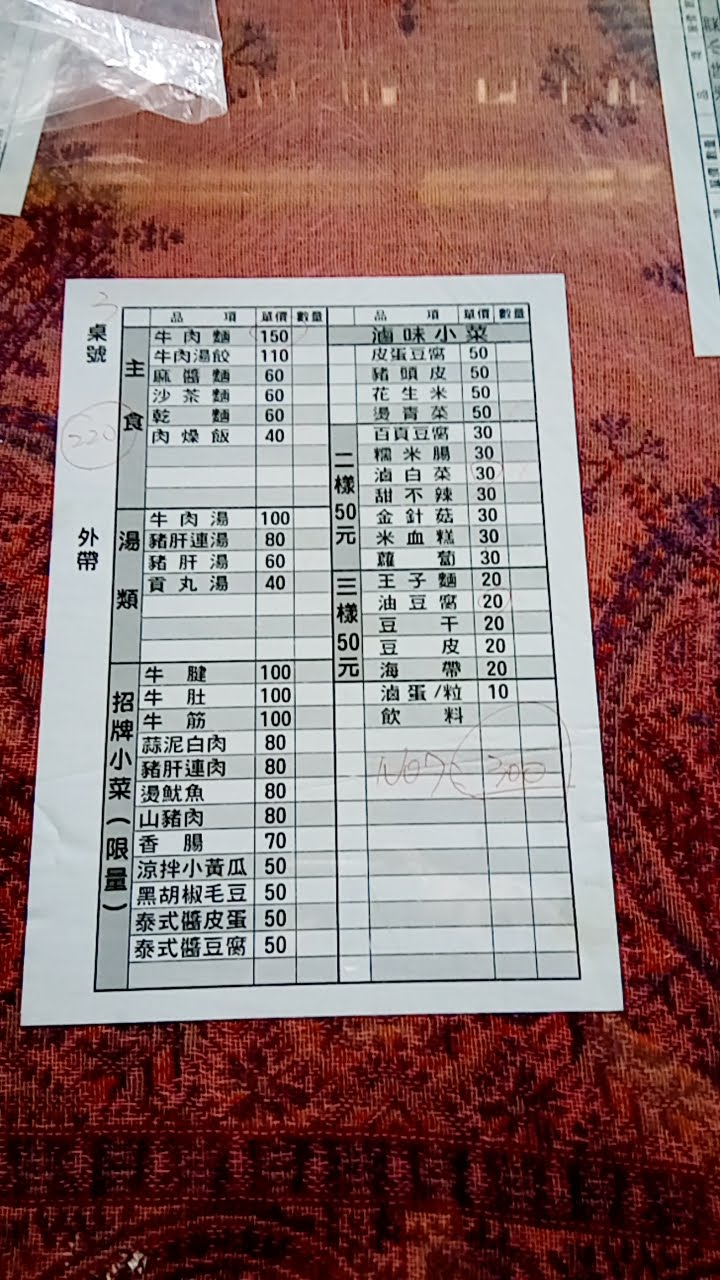 3
桌號
220
外帶
品項 單價 數量
主食
牛肉麵 150
牛肉湯餃 110
麻醬麵 60
沙茶麵 60
乾麵 60
肉燥飯 40
湯類
牛肉湯 100
豬肝連湯 80
豬肝湯 60
貢丸湯 40
招牌小菜(限量)
牛腱 100
牛肚 100
牛筋 100
蒜泥白肉 80
豬肝連肉 80
燙魷魚 80
山豬肉 80
香腸 70
涼拌小黃瓜 50
黑胡椒毛豆 50
泰式醬皮蛋 50
泰式醬豆腐 50
品項 單價 數量
滷味小菜
皮蛋豆腐 50
豬頭皮 50
花生米 50
燙青菜 50
二樣50元
百頁豆腐 30
糯米腸 30
滷白菜 30
甜不辣 30
金針菇 30
米血糕 30
蘿蔔 30
三樣50元
王子麵 20
油豆腐 20
豆干 20
豆皮 20
海帶 20
滷蛋/粒 10
飲料
300